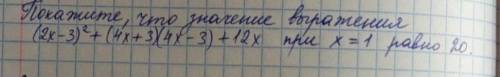 Покажите, что значение выражения
(2x-3)²+(4x+3)(4x-3)+12x при x=1 равно 20.